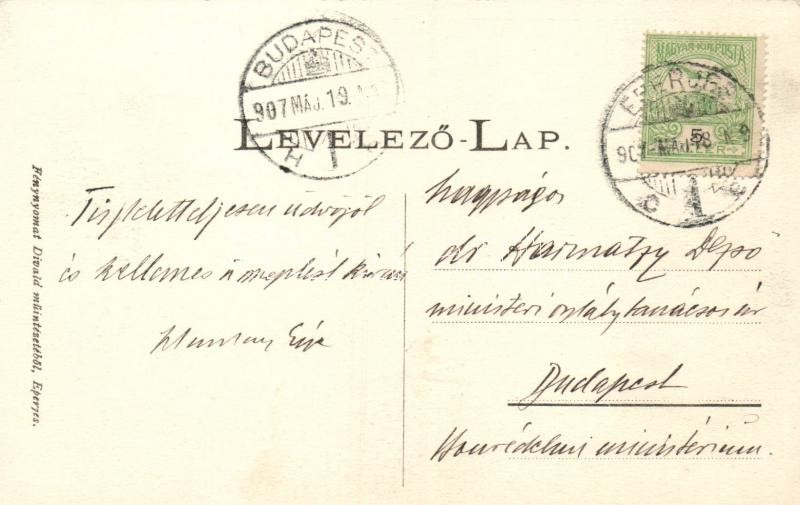 BUDAPEST
907 MÁJ. 19.
H 1
MAGYAR KIR. POSTA
5
EPERJES
907 MÁJ 18
1
LEVELEZŐ-LAP.
Tiszteletteljesen üdvözöl
és kellemes ünneplést kíván
Nagyságos
dr Harmatzy Dezső
ministeri osztálytanácsos úr
Budapest
Honvédelmi ministérium.
Fénynyomat Divald műintézetéből, Eperjes.